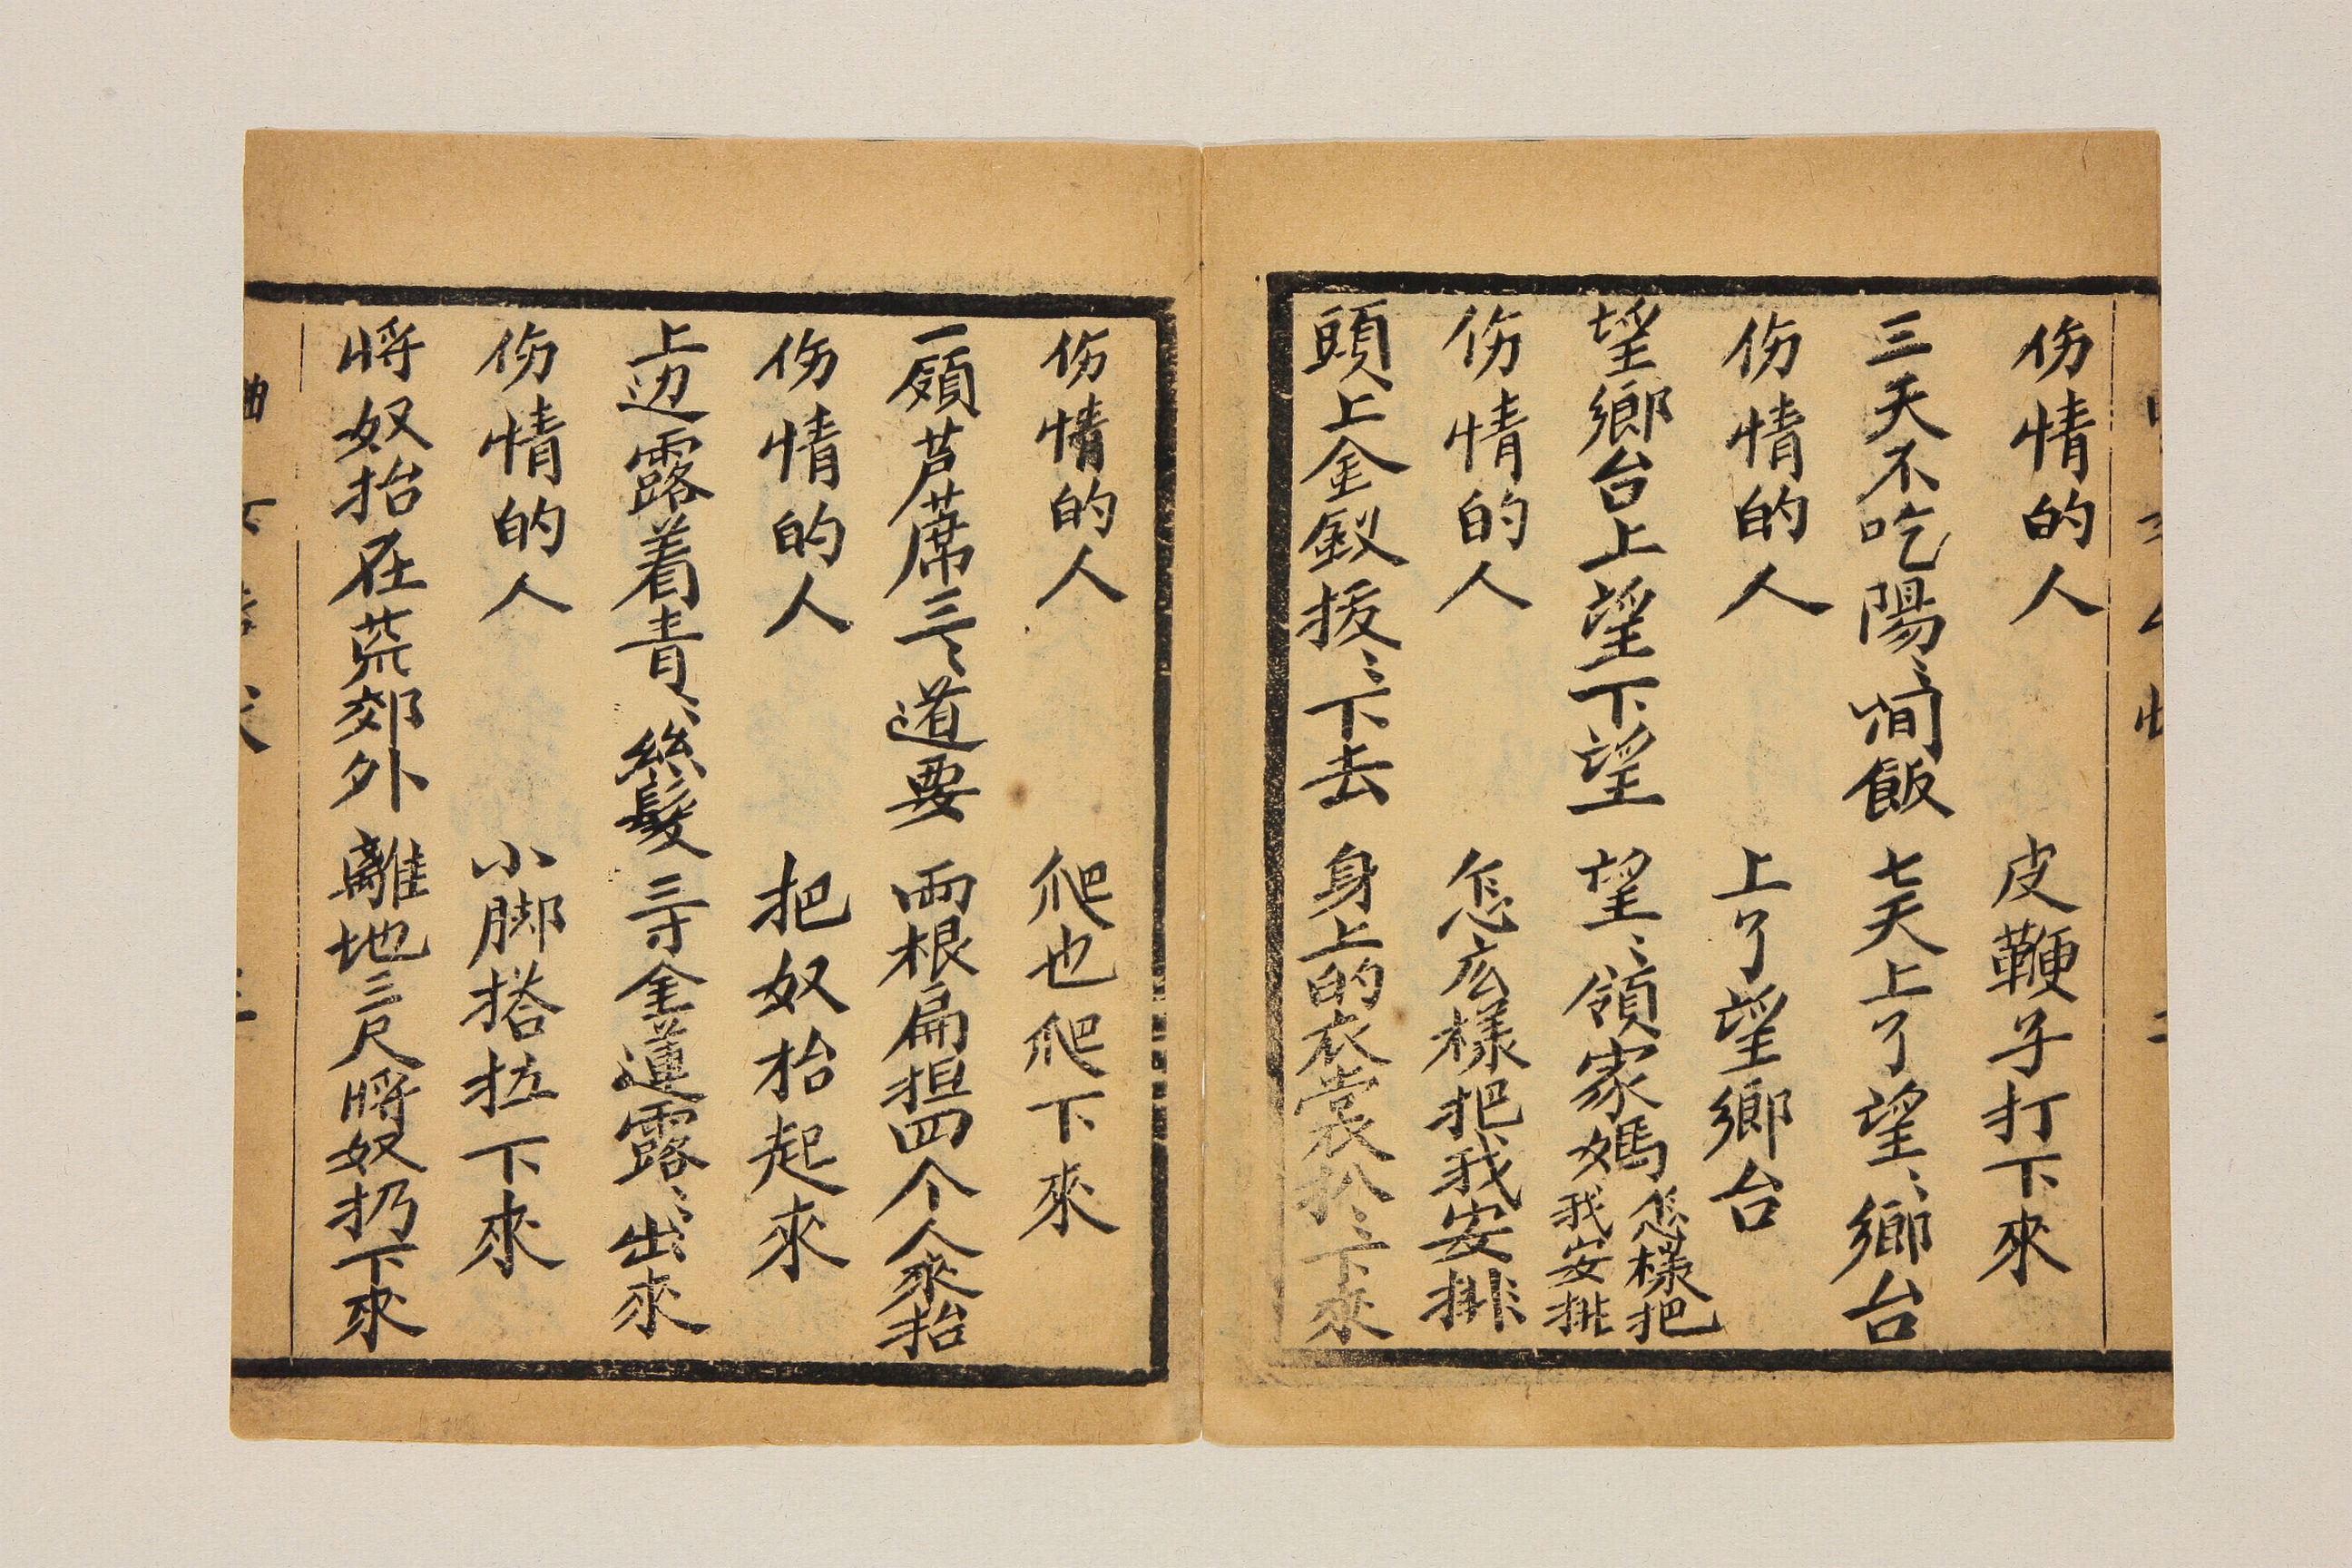 伤情的人 皮鞭子打下來
三天不吃陽〻间飯 七天上了望〻鄉台
伤情的人 上了望鄉台
望鄉台上望下望 望〻領家媽怎樣把我安排
伤情的人 怎広樣把我安排
頭上金釵拔〻下去 身上的衣裳扒〻下來
伤情的人 爬也爬下來
一領芦蓆三〻道要 両根扁担四个人來抬
伤情的人 把奴抬起來
上边露着青〻絲髮 三寸金蓮露〻出來
伤情的人 小脚搭拉下來
将奴抬在荒郊外 離地三尺將奴扔下來